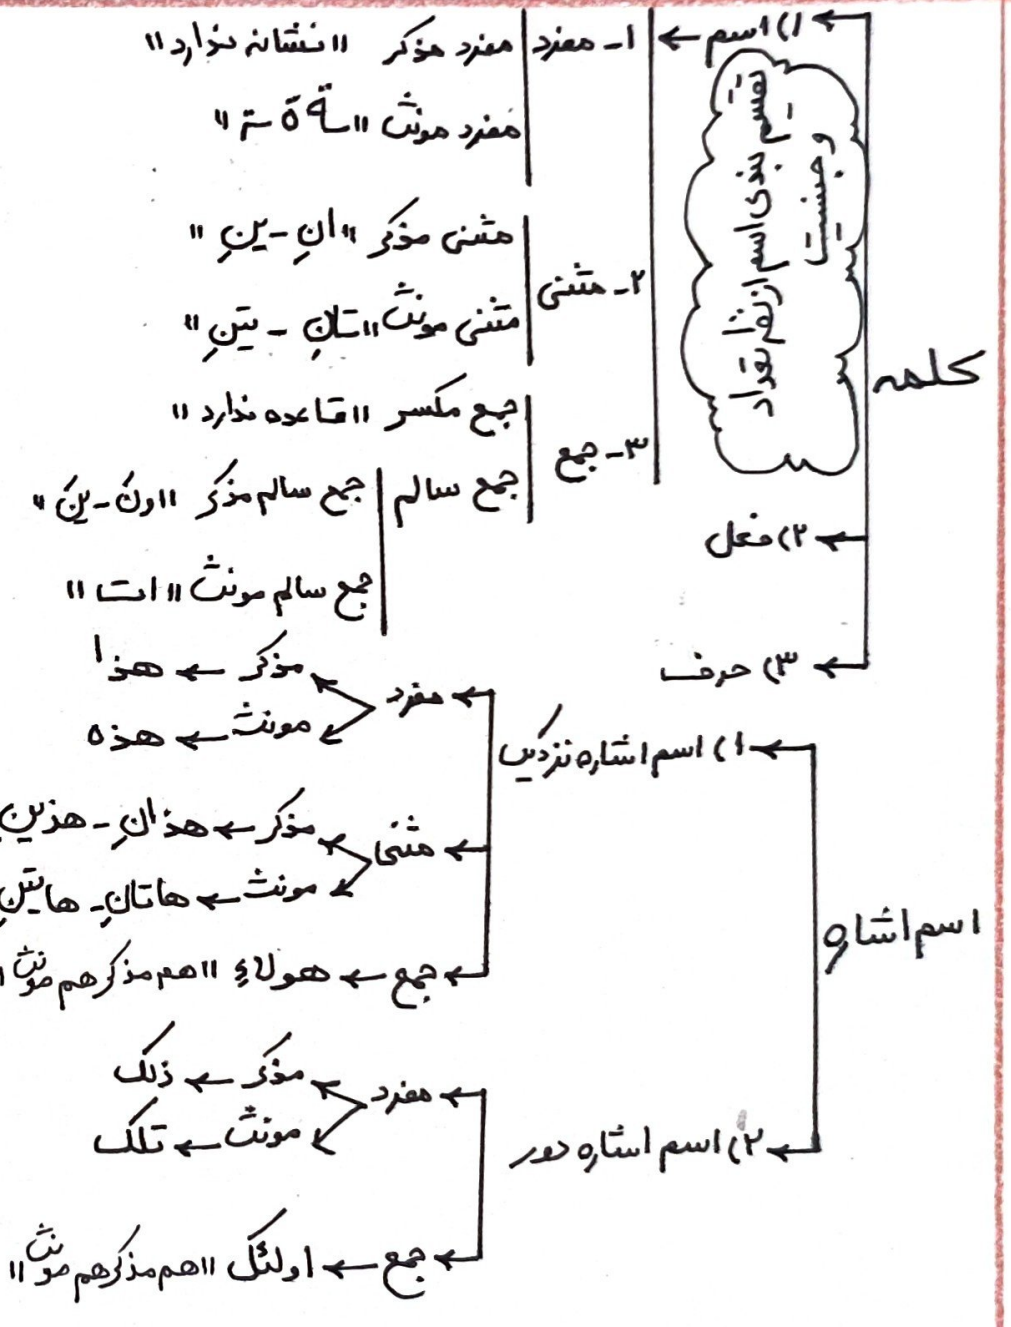 کلمه
۱) اسم
تقسیم بندی اسم از نظر تعداد
و جنسیت
۱- مفرد
مفرد مذکر "نشانه ندارد"
مفرد مونث "ـة ة ـتـ"
۲- مثنی
مثنی مذکر "انِ - ینِ"
مثنی مونث "تانِ - تینِ"
۳- جمع
جمع مکسر "قاعده ندارد"
جمع سالم
جمع سالم مذکر "ونَ - ینَ"
جمع سالم مونث "ات"
۲) فعل
۳) حرف
اسم اشاره
۱) اسم اشاره نزدیک
مفرد
مذکر ← هذا
مونث ← هذه
مثنی
مذکر ← هذانِ - هذینِ
مونث ← هاتانِ - هاتینِ
جمع ← هولاءِ "هم مذکر هم مونث"
۲) اسم اشاره دور
مفرد
مذکر ← ذلک
مونث ← تلک
جمع ← اولئک "هم مذکر هم مونث"